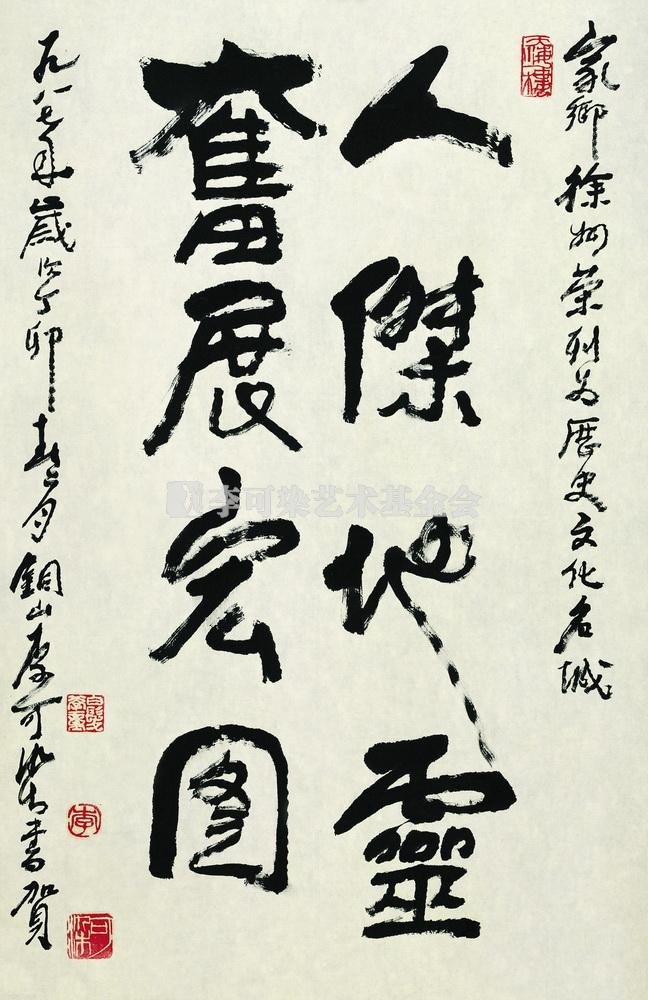 家鄉徐州荣列为歷史文化名城
人傑地靈
奮展宏图
一九八七年歲次丁卯春月銅山李可染書賀
李
可染
李可染艺术基金会